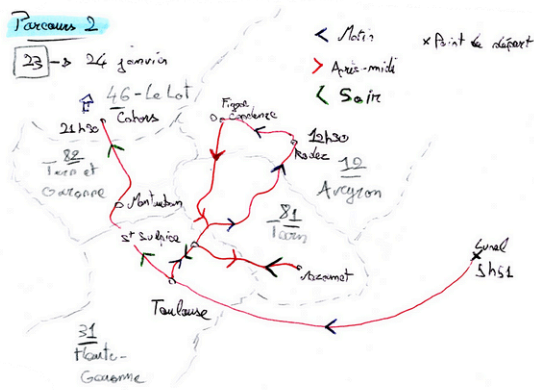 Parcours 2
23 → 24 janvier
< Matin
> Après-midi
< Soir
x Point de départ
46 - Le Lot
Cahors
21h30
Figeac
Capdenac
12h30
Rodez
12
Aveyron
82
Tarn et
Garonne
Montauban
81
Tarn
St Sulpice
Mazamet
Lunel
5h51
Toulouse
31
Haute-
Garonne